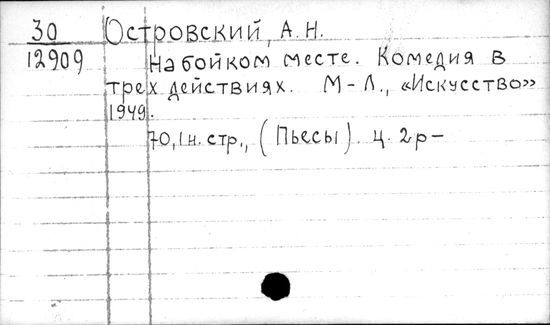 30 Островский, А. Н.
12909 На бойком месте. Комедия в
трех действиях. М-Л., «Искусство»
1949.
70, 1 н. стр., (Пьесы). Ц. 2р-